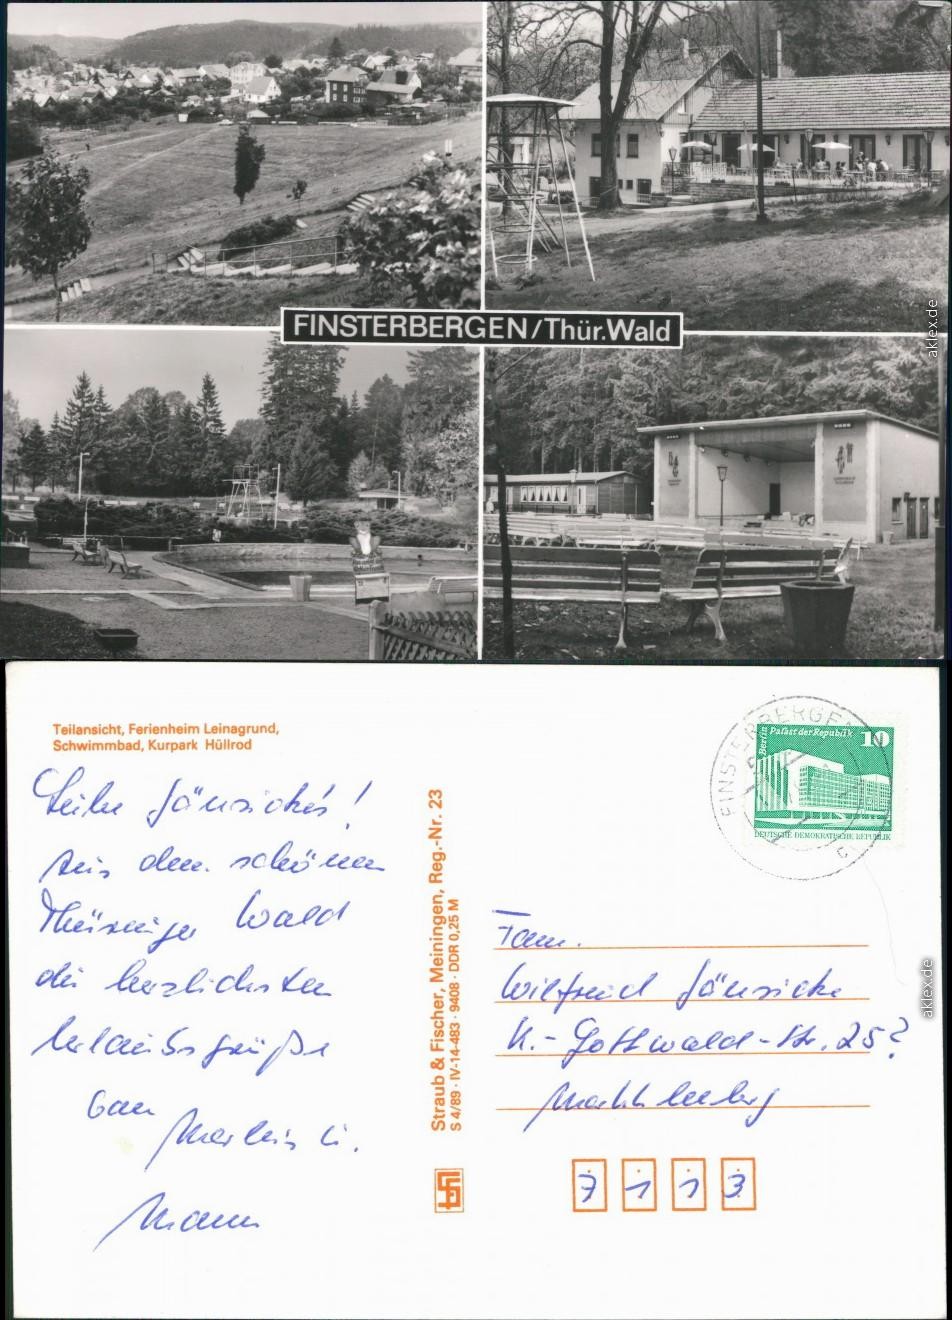 FINSTERBERGEN/Thür.Wald
aklex.de
Teilansicht, Ferienheim Leinagrund,
Schwimmbad, Kurpark Hüllrod
Liebe Jänsicke's!
Aus dem schönen
Thüringer Wald
die herzlichsten
Urlaubsgrüße
von
u.
Mann
Straub & Fischer, Meiningen, Reg.-Nr. 23
S 4/89 · IV-14-483 · 9408 · DDR 0,25 M
FINSTERBERGEN
Berlin
Palast der Republik
10
DEUTSCHE DEMOKRATISCHE REPUBLIK
Fam.
Wilfried Jänsicke
K.-Gottwald-Str. 25?
Markkleeberg
7 1 1 3
aklex.de